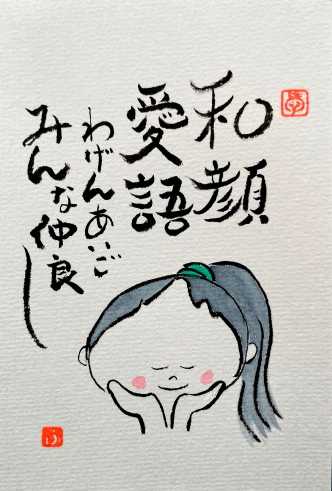 和顔
愛語
わげんあいご
みんな仲良し